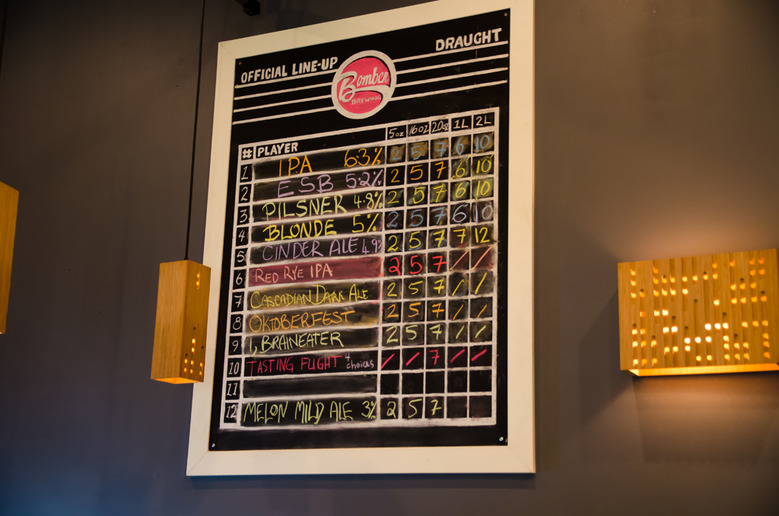 OFFICIAL LINE-UP DRAUGHT
Bomber
BREWING
# PLAYER 5oz 16oz 20oz 1L 2L
1 IPA 6.3% 2 5 7 6 10
2 ESB 5.2% 2 5 7 6 10
3 PILSNER 4.8% 2 5 7 6 10
4 BLONDE 5% 2 5 7 6 10
5 CINDER ALE 4.9% 2 5 7 7 12
6 RED RYE IPA 2 5 7 / /
7 CASCADIAN DARK ALE 2 5 7 / /
8 OKTOBERFEST 2 5 7 / /
9 I, BRAINEATER 2 5 7 / /
10 TASTING FLIGHT 4 choices / / 7 / /
11
12 MELON MILD ALE 3% 2 5 7